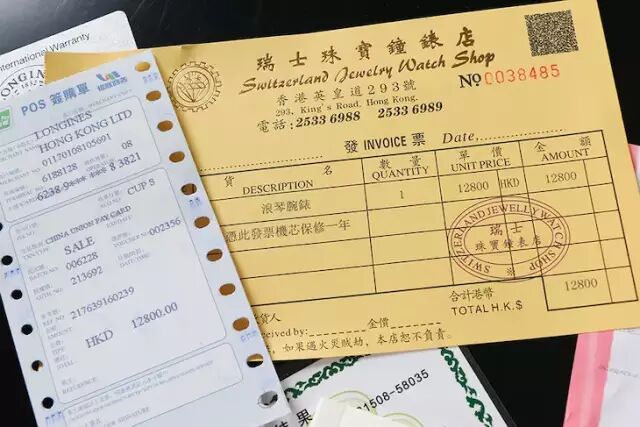 International Warranty
POS 簽購單
LONGINES
HONG KONG LTD
01120108105691
6188128 08
CUP S
CHINA UNION PAY CARD
SALE
006228
002356
213692
217639160239
HKD 12800.00
瑞士珠寶鐘錶店
Switzerland Jewelry Watch Shop
香港英皇道293號
293, King's Road, Hong Kong.
電話: 2533 6988 2533 6989
No 0038485
發 INVOICE 票 Date
貨 名 數 量 單 價 金 額
DESCRIPTION QUANTITY UNIT PRICE AMOUNT
浪琴腕錶 1 12800 HKD 12800
憑此發票機芯保修一年
SWITZERLAND JEWELLY WATCH SHOP
瑞士
珠寶鐘表店
合計港幣
TOTAL H.K.$ 12800
貨人 金價
ceived by:
如果遇火災賊劫，本店恕不負責.
1508-58035
果